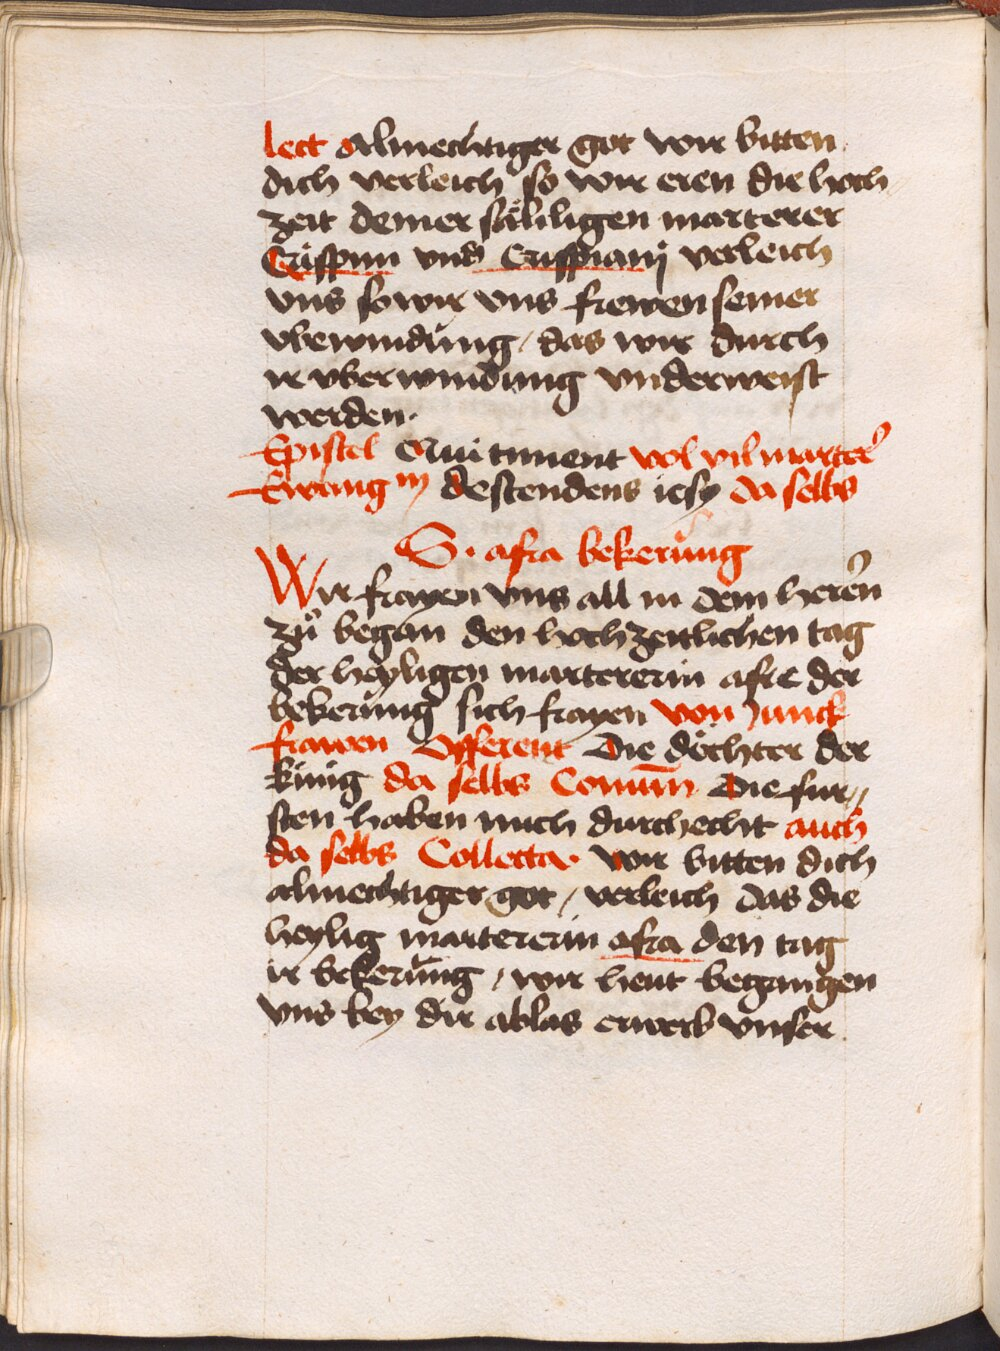 lect Almechtiger got wir bitten
dich verleich so wir eren die hoch
zeit deiner säliligen marterer
Crispini vnd Crispianj verleich
vns so wir vns frewen seiner
vbewindung / das wir durch
ir vberwindung vnderweist
werden.
Epistel Qui timent vol vil marter
Ewang descendens iesy da selbs
S. afra bekerůng
Wir frayen vns all in dem heren
zů began den hochzeitlichen tag
der heyligen martererin afre der
bekerung sich frayen von junck
frawen Offerent Die döchter der
küng da selbs Comům Die fur//
sten haben mich durchecht auch
da selbs Collecta. wir bitten dich
almechtiger got / verleich das die
heylig martererin afra den tag
ir bekerůng / wir heut begangen
vns bey dir ablas erwerb vnser